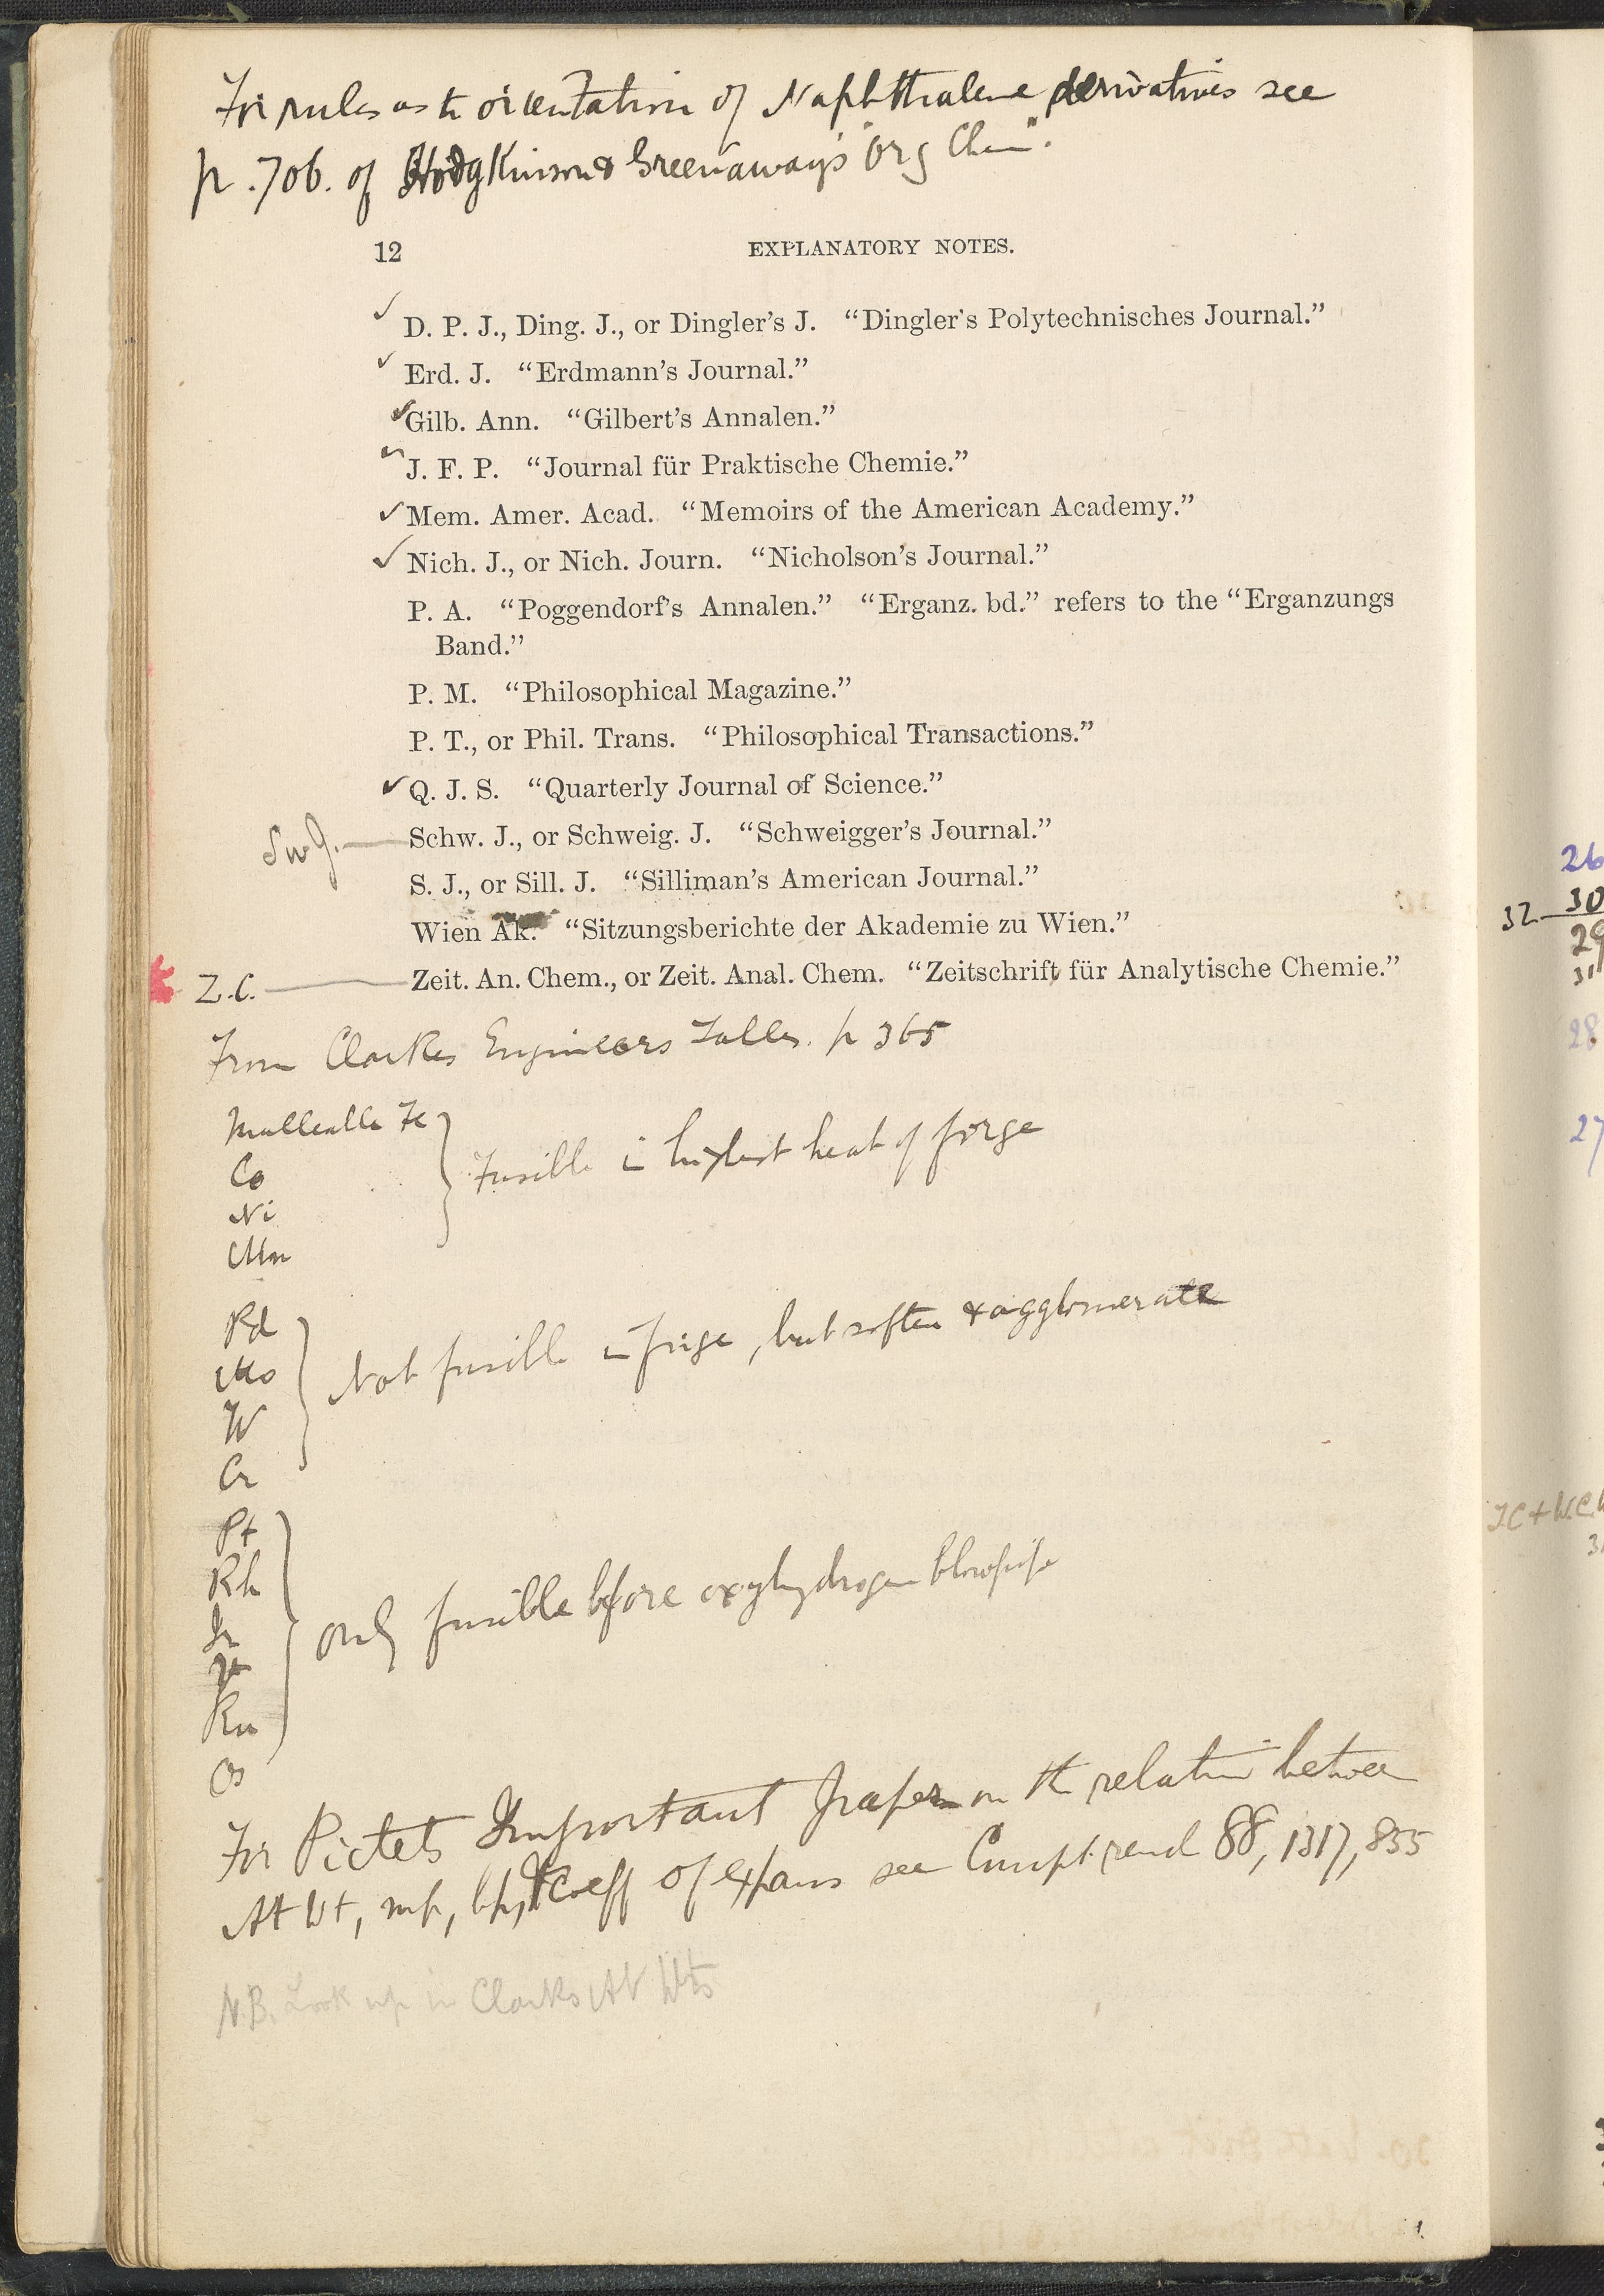 For rules as to orientation of Naphthalene derivatives see
p. 706. of Hodgkinson & Greenaway's "Org Chem".
12 EXPLANATORY NOTES.
✓ D. P. J., Ding. J., or Dingler's J. “Dingler's Polytechnisches Journal.”
✓ Erd. J. “Erdmann's Journal.”
✓ Gilb. Ann. “Gilbert's Annalen.”
✓ J. F. P. “Journal für Praktische Chemie.”
✓ Mem. Amer. Acad. “Memoirs of the American Academy.”
✓ Nich. J., or Nich. Journ. “Nicholson's Journal.”
P. A. “Poggendorf's Annalen.” “Erganz. bd.” refers to the “Erganzungs
Band.”
P. M. “Philosophical Magazine.”
P. T., or Phil. Trans. “Philosophical Transactions.”
✓ Q. J. S. “Quarterly Journal of Science.”
Sw J. — Schw. J., or Schweig. J. “Schweigger's Journal.”
S. J., or Sill. J. “Silliman's American Journal.”
Wien Ak. “Sitzungsberichte der Akademie zu Wien.”
Z.C. — Zeit. An. Chem., or Zeit. Anal. Chem. “Zeitschrift für Analytische Chemie.”
From Clarkes Engineers Tables. p 365
Malleable Fe
Co
Fusible in highest heat of forge
Ni
Mn
Pd
Mo
Not fusible in forge, but soften & agglomerate
W
Cr
Pt
Rh
Ir
only fusible before oxyhydrogen blowpipe
Ru
Os
For Pictets Important paper on the relation between
At Wt, mp, bp, & Coeff of expans see Compt. rend 88, 1317, 855
N.B. Look up in Clarks At Wts
26
32 — 30
29
31
28
27